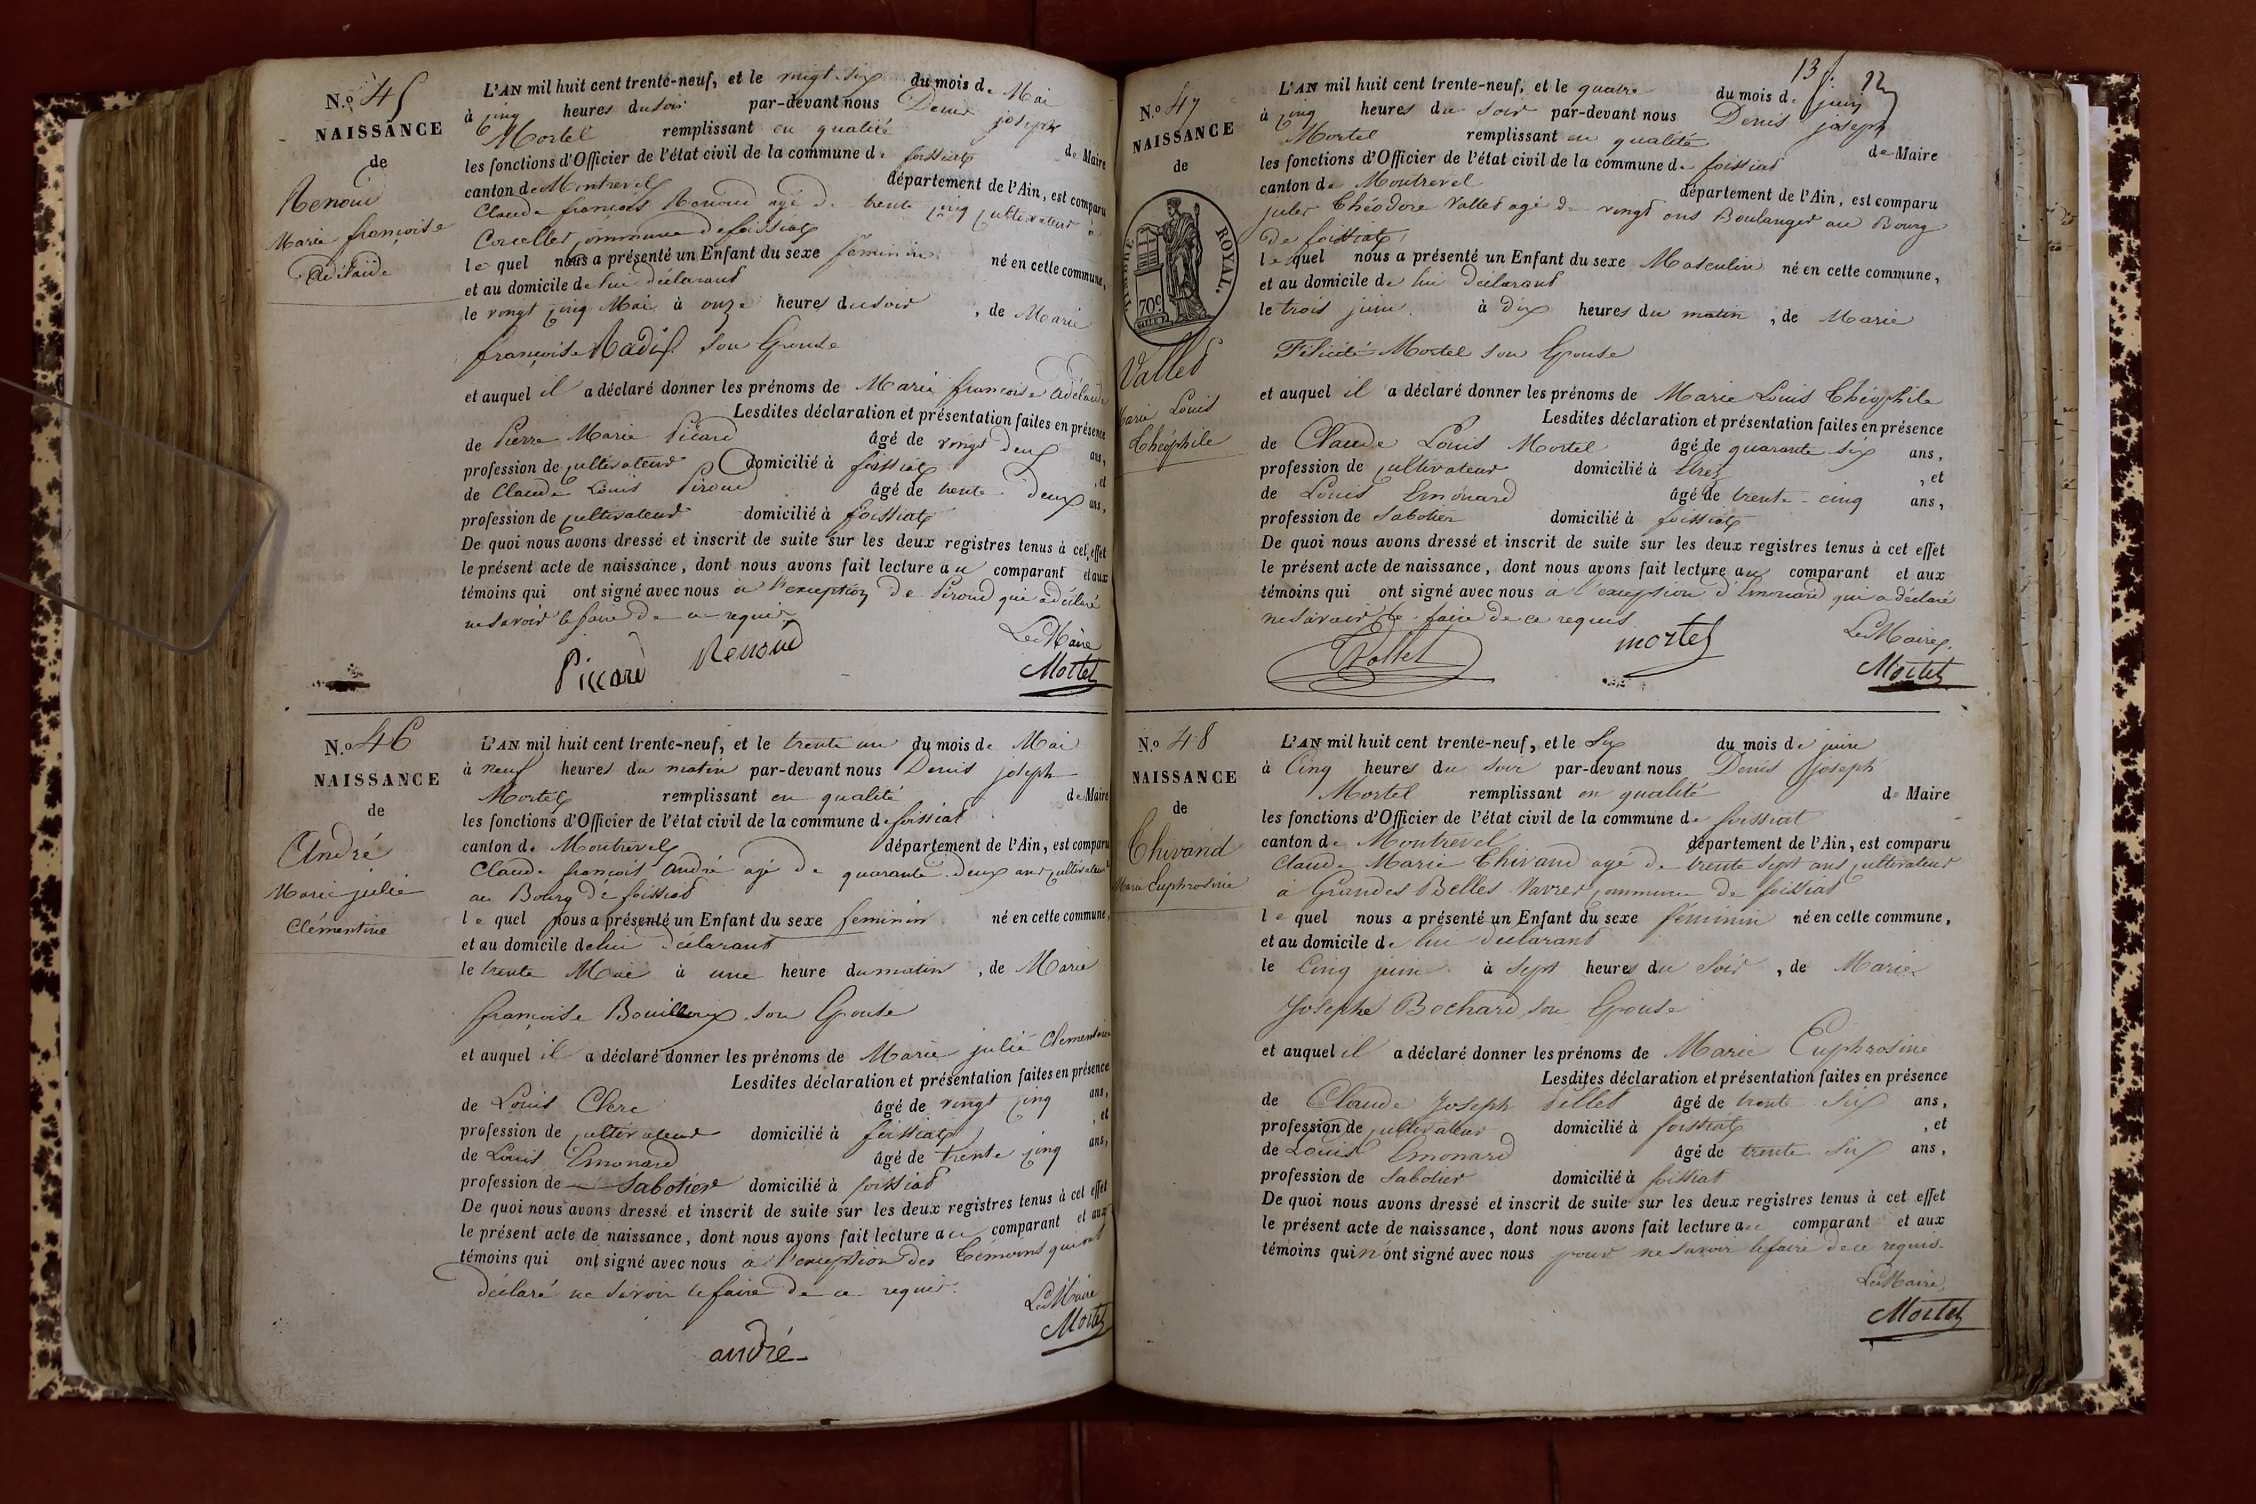 N.º 45
NAISSANCE
de
Renoud
Marie françoise
Adélaïde
L'AN mil huit cent trente-neuf, et le vingt-six du mois de Mai
à cinq heures du soir par-devant nous Denis joseph
Mortel remplissant en qualité de Maire
les fonctions d'Officier de l'état civil de la commune de foissiat
canton de Montrevel département de l'Ain, est comparu
Claude françois Renoud agé de trente cinq cultivateur à
Corcelles commune de foissiat
le quel nous a présenté un Enfant du sexe féminin né en cette commune,
et au domicile de lui déclarant
le vingt cinq Mai à onze heures du soir , de Marie
françoise Nadif son Epouse
et auquel il a déclaré donner les prénoms de Marie françoise adélaïde
Lesdites déclaration et présentation faites en présence
de Pierre Marie Picard âgé de vingt deux ans,
profession de cultivateur domicilié à foissiat , et
de Claude Louis Piroud âgé de trente deux ans,
profession de cultivateur domicilié à foissiat
De quoi nous avons dressé et inscrit de suite sur les deux registres tenus à cet effet
le présent acte de naissance, dont nous avons fait lecture au comparant et aux
témoins qui ont signé avec nous à l'exception de Piroud qui a déclaré
ne savoir le faire de ce requis
Le Maire
Piccard Renoud Mortel
N.º 46
NAISSANCE
de
André
Marie julie
Clémentine
L'AN mil huit cent trente-neuf, et le trente un du mois de Mai
à neuf heures du matin par-devant nous Denis joseph
Mortel remplissant en qualité de Maire
les fonctions d'Officier de l'état civil de la commune de foissiat
canton de Montrevel département de l'Ain, est comparu
Claude françois André agé de quarante deux ans cultivateur
au Bourg de foissiat
le quel nous a présenté un Enfant du sexe féminin né en cette commune,
et au domicile de lui déclarant
le trente Mai à une heure du matin , de Marie
françoise Bouilloux son Epouse
et auquel il a déclaré donner les prénoms de Marie julie Clémentine
Lesdites déclaration et présentation faites en présence
de Louis Clerc âgé de vingt cinq ans,
profession de cultivateur domicilié à foissiat , et
de Louis Emonard âgé de trente cinq ans,
profession de Sabotier domicilié à foissiat
De quoi nous avons dressé et inscrit de suite sur les deux registres tenus à cet effet
le présent acte de naissance, dont nous avons fait lecture au comparant et aux
témoins qui ont signé avec nous à l'exception des témoins qui ont
déclaré ne savoir le faire de ce requis.
Le Maire
andré Mortel
13
N.º 47
NAISSANCE
de
TIMBRE ROYAL.
70c
Vallet
Marie Louis
Théophile
L'AN mil huit cent trente-neuf, et le quatre du mois de juin
à cinq heures du soir par-devant nous Denis joseph
Mortel remplissant en qualité de Maire
les fonctions d'Officier de l'état civil de la commune de foissiat
canton de Montrevel département de l'Ain, est comparu
jules Théodore Vallet agé de vingt ans Boulanger au Bourg
de foissiat
le quel nous a présenté un Enfant du sexe Masculin né en cette commune,
et au domicile de lui déclarant
le trois juin à dix heures du matin , de Marie
Félicité Mortel son Epouse
et auquel il a déclaré donner les prénoms de Marie Louis Théophile
Lesdites déclaration et présentation faites en présence
de Claude Louis Mortel âgé de quarante six ans,
profession de cultivateur domicilié à Etrez , et
de Louis Emonard âgé de trente-cinq ans,
profession de Sabotier domicilié à foissiat
De quoi nous avons dressé et inscrit de suite sur les deux registres tenus à cet effet
le présent acte de naissance, dont nous avons fait lecture au comparant et aux
témoins qui ont signé avec nous à l'exception d'Emonard qui a déclaré
ne savoir le faire de ce requis
Le Maire
Vallet mortel Mortel
N.º 48
NAISSANCE
de
Thivand
Marie Euphrosine
L'AN mil huit cent trente-neuf, et le Six du mois de juin
à Cinq heures du soir par-devant nous Denis joseph
Mortel remplissant en qualité de Maire
les fonctions d'Officier de l'état civil de la commune de foissiat
canton de Montrevel département de l'Ain, est comparu
Claude Marie Thivand agé de trente sept ans cultivateur
à Grandes Belles Vavres commune de foissiat
le quel nous a présenté un Enfant du sexe féminin né en cette commune,
et au domicile de lui déclarant
le Cinq juin à Sept heures du Soir , de Marie
Josephe Bochard son Epouse
et auquel il a déclaré donner les prénoms de Marie Euphrosine
Lesdites déclaration et présentation faites en présence
de Claude Joseph Pellet âgé de trente Six ans,
profession de cultivateur domicilié à foissiat , et
de Louis Emonard âgé de trente Six ans,
profession de Sabotier domicilié à foissiat
De quoi nous avons dressé et inscrit de suite sur les deux registres tenus à cet effet
le présent acte de naissance, dont nous avons fait lecture au comparant et aux
témoins qui n'ont signé avec nous pour ne savoir le faire de ce requis.
Le Maire
Mortel